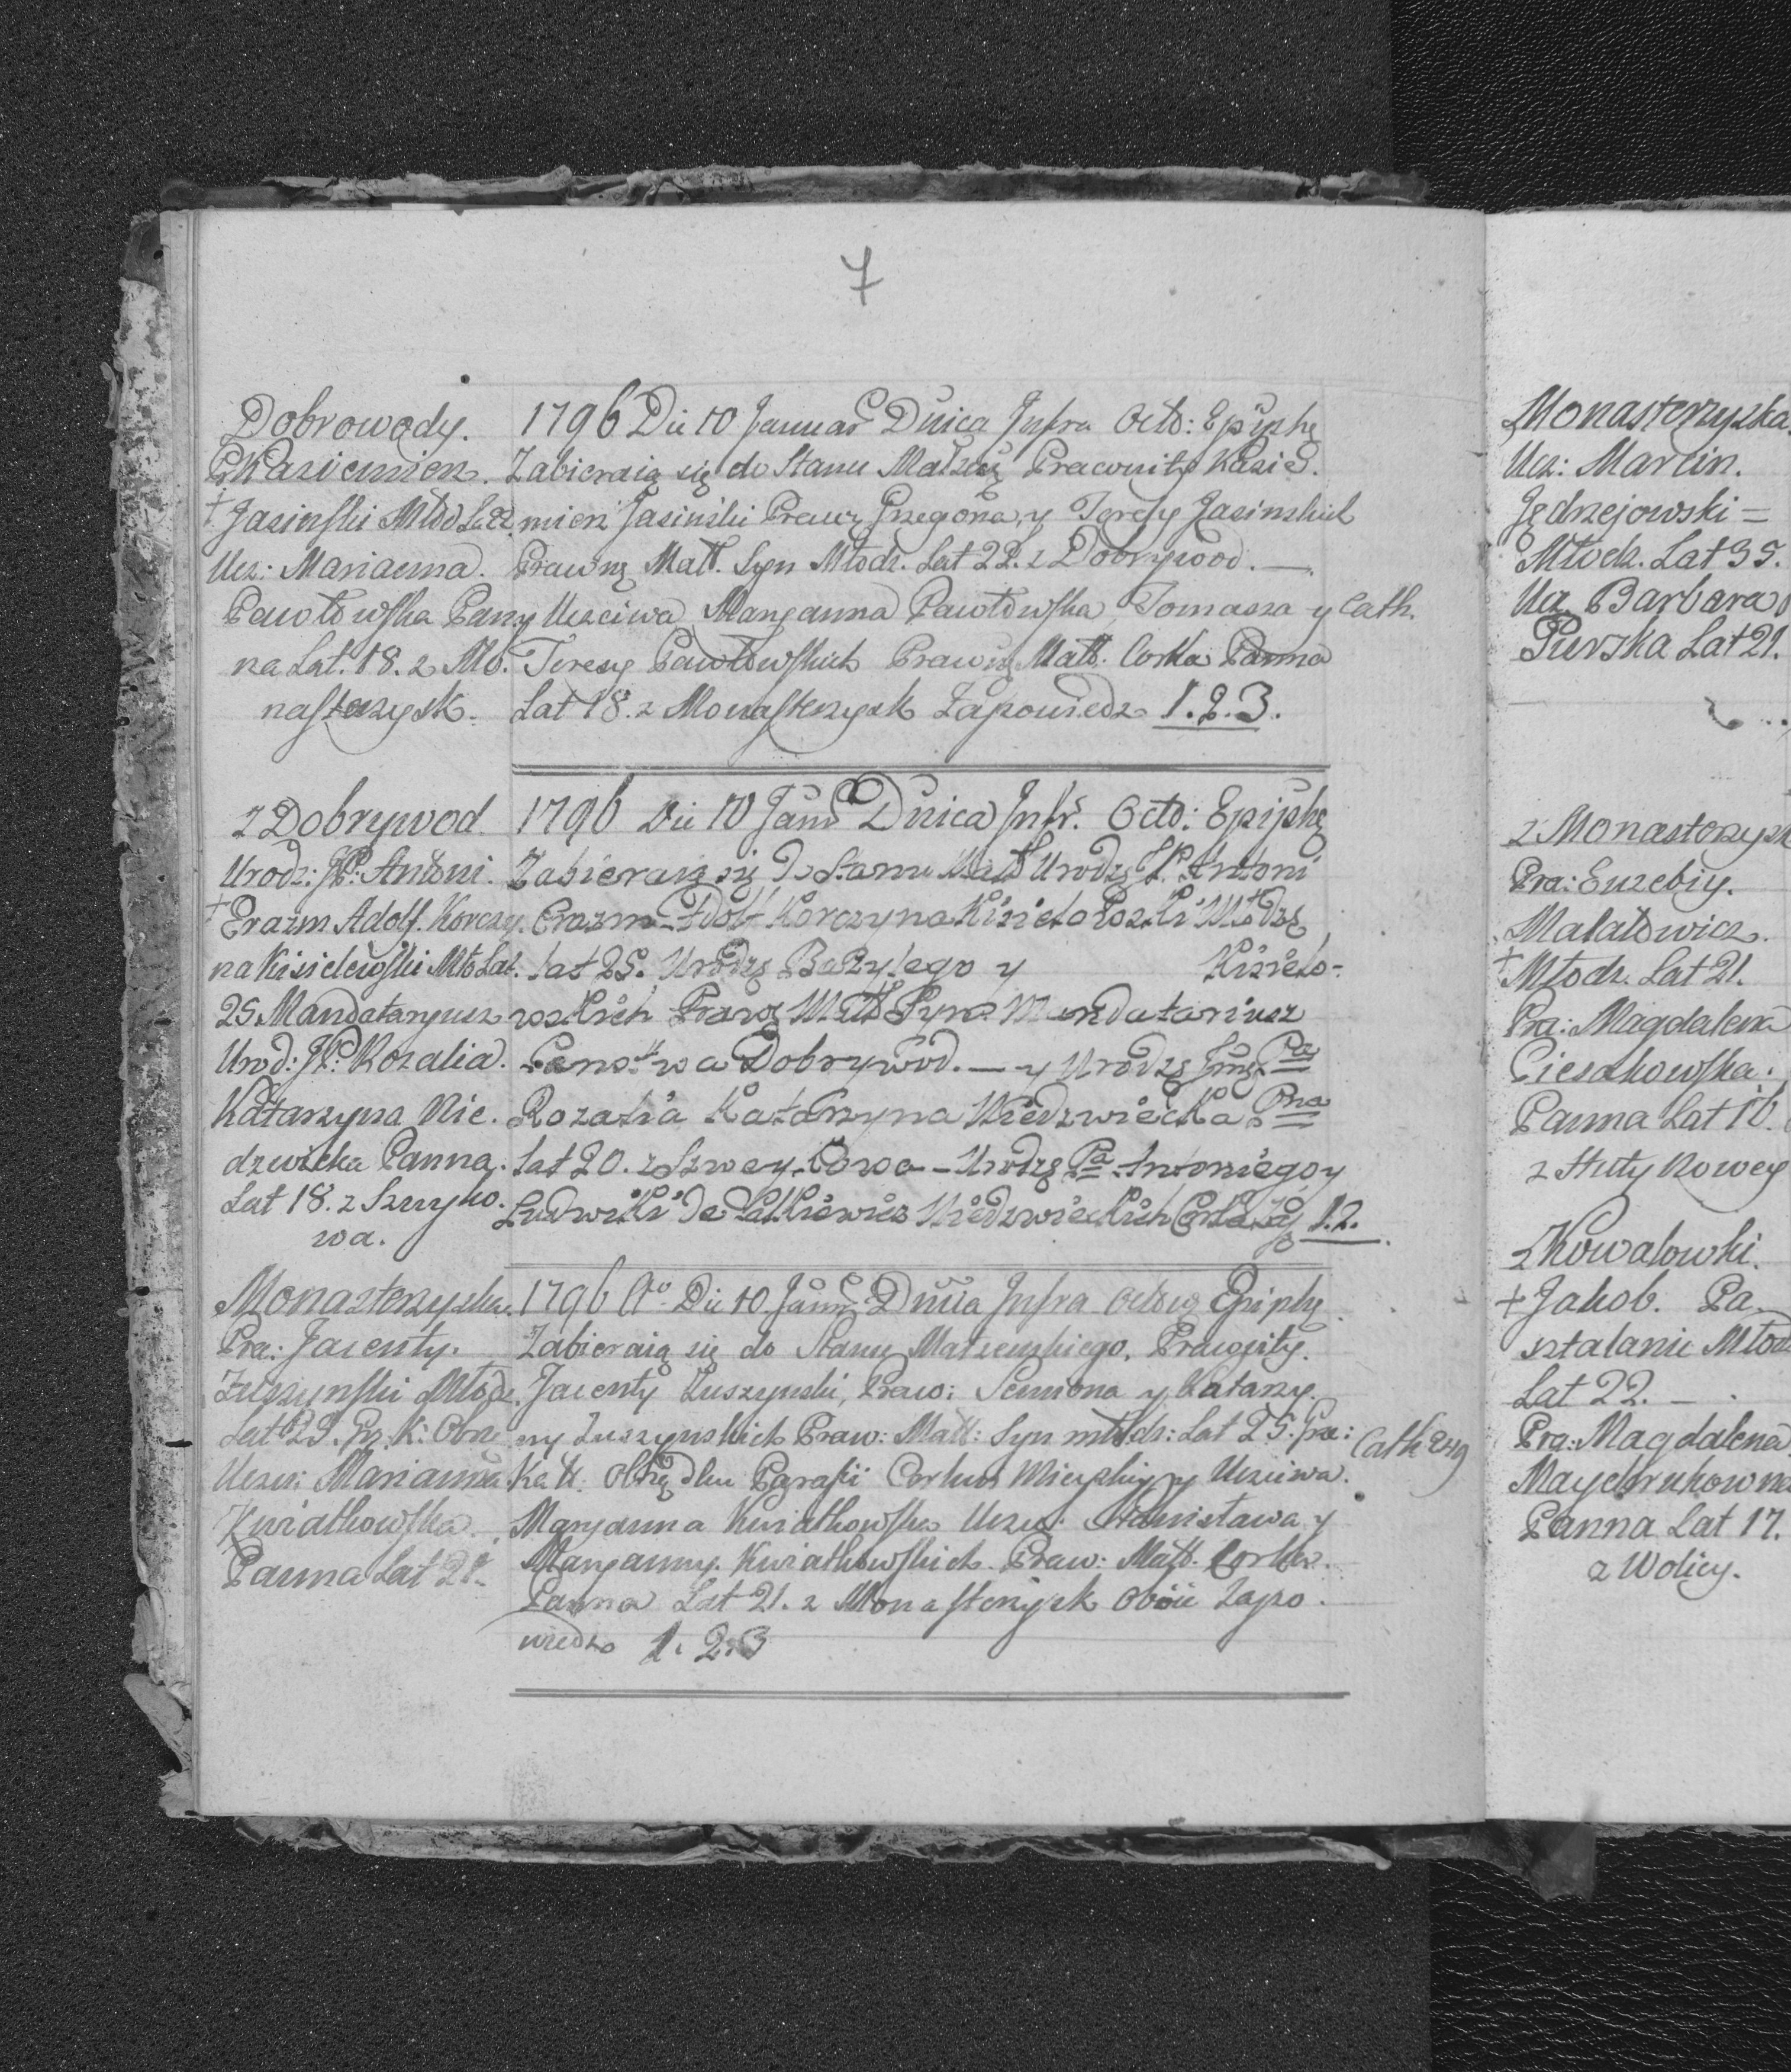 7
Dobrowody.
Kazimierz.
† Jasinski Młod Lat 22.
Ucz: Marianna.
Pawłowska Pan
na Lat. 18. z Mo.
nasterzysk.
1796 Die 10 Januar Dnica Infra Octo: Epiphę
Zabieraią się do Stanu Małżeń Pracowity Kazi
mierz Jasinski Prawą Grzegorza, y Teresy Jasinskich
Prawną Małż. Syn Młodz. Lat 22. z Dobrywod. —
Uczciwa Maryanna Pawłowska, Tomasza y Cath.
Teresy Pawłowskich Prawną Małż. Corka Panna
Lat 18. z Monasterzysk Zapowiedz 1. 2. 3.
z Dobrywod.
Urodz: JP: Antoni.
† Erazm Adolf. Korczy.
na Kisielewski Mło Lat.
25 Mandataryusz
Urod: JP: Rozalia.
Katarzyna Nie.
dzwicka Panna.
Lat 18. z Szwey ko.
wa.
1796 Die 10 Janr Dnica Infr. Octo: Epiphę
Zabieraią się Do Stanu Małż Urodzę JP. Antoni
Erazm Adolf Korczyna Kisielo Młodzę
Lat 25. Urodzę Bazylego y Kisielo-
wskich Prawą Małż Syn Mandatariusz
Państwa Dobrywod. — y Urodzę Jmę Pa
Rozalia Katarzyna Niedzwiecka Pna
Lat 20. z Szweykowa - Urodzę Pa Antoniego y
Ludwiki de Niedzwieckich Corka Zap 1. 2.
Monasterzyska.
Pra: Jacenty.
Zuszynski Młodz.
Lat 25. K: Obrzę
Uczci: Marianna
Kwiatkowska.
Panna Lat 21.
1796 Ao Die 10. Janr Dnica Infra Octavę Epiphę.
Zabieraią się do Stanu Małżenskiego, Pracowity.
Jacenty Zuszynski, Praw: Semiona y Katarzy.
ny Zuszynskich Praw: Małż: Syn młodz: Lat 25. Gre: Cath
Kath. Obrządku Parafii y Uczciwa.
Maryanna Kwiatkowska Uczci: Stanisława y
Maryanny. Kwiatkowskich. Praw: Małż. Corka.
Panna Lat 21. z Monasterzysk oboie Zapo.
wiedz 1. 2. 3
Monasterzyska
Ucz: Marcin.
Jędrzejowski =
Młodz. Lat 35.
Ucz. Barbara
Lat 21.
z Monasterzysk
Pra: Euzebiy.
Malatowicz.
† Młodz. Lat 21.
Pra: Magdalena
Cieszkowska.
Panna Lat 16.
z Huty Nowey
z Kowalowki.
+ Jakob. Pa
sztalaniu Młod
Lat 22. —
Pra: Magdalena
Panna Lat 17.
z Wolicy.